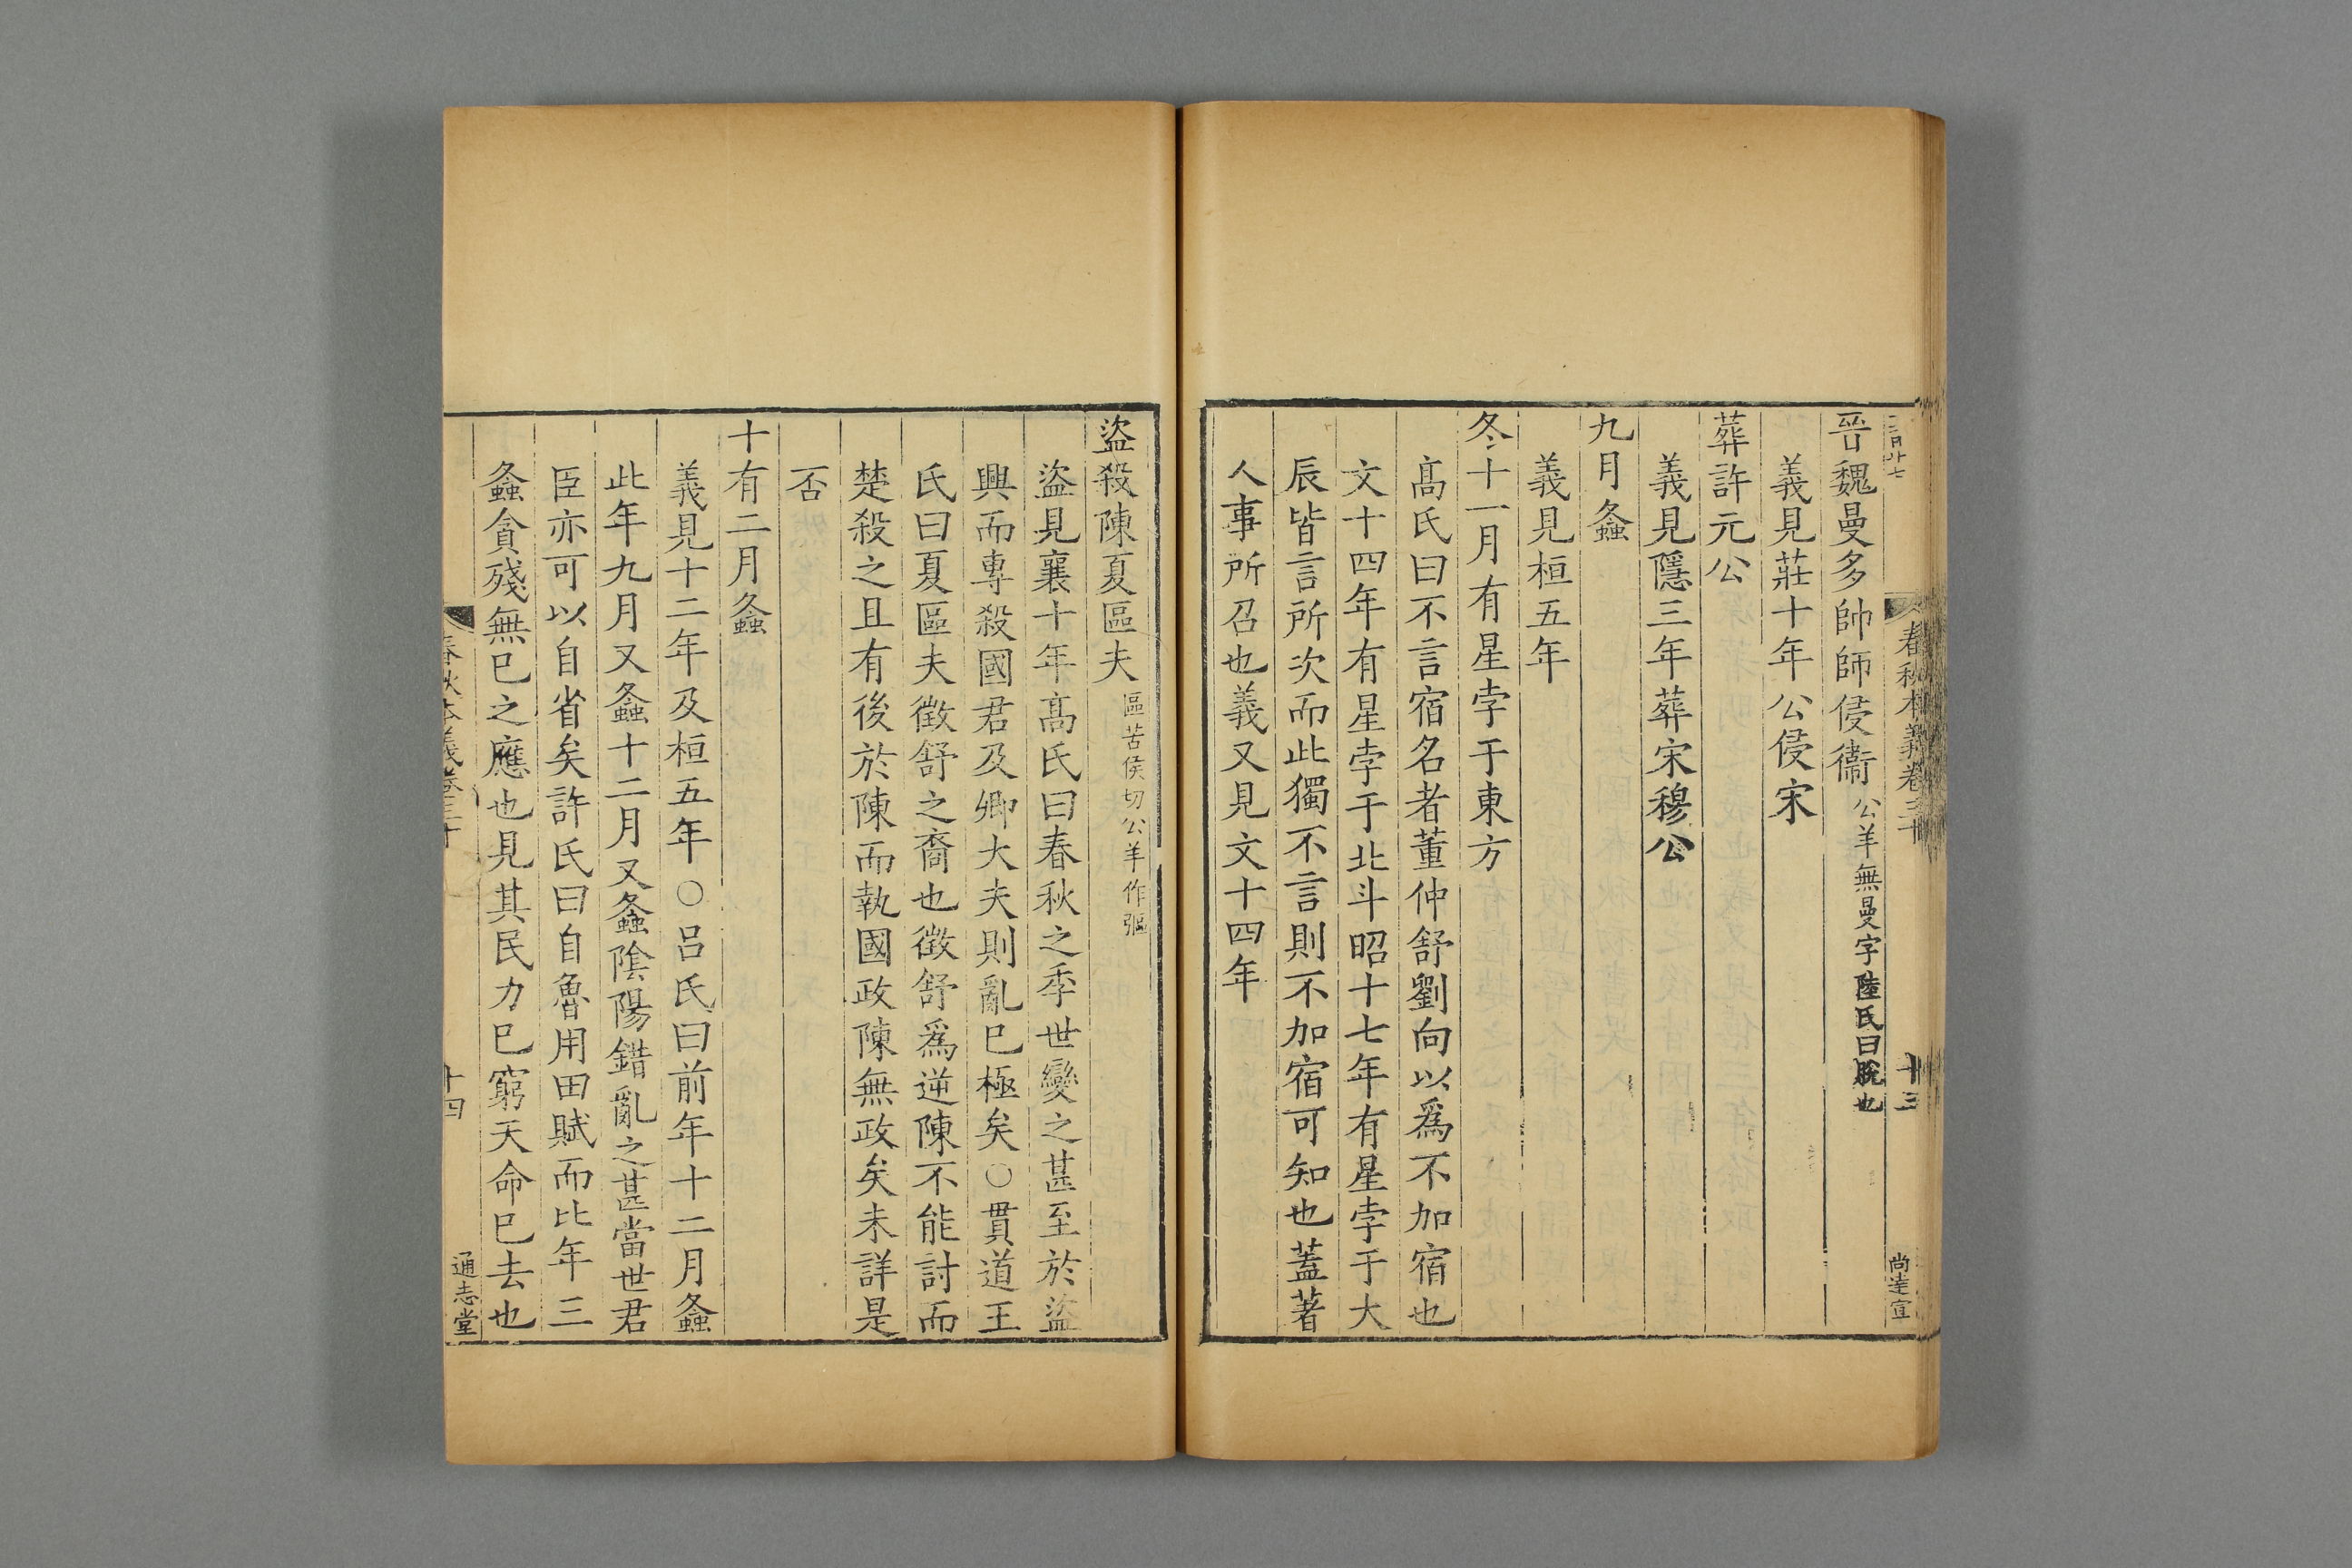 春秋本義卷三十
十三
尚達宣
晉魏曼多帥師侵衞公羊無曼字陸氏曰脫也
義見莊十年公侵宋
葬許元公
義見隱三年葬宋穆公
九月螽
義見桓五年
冬十一月有星孛于東方
高氏曰不言宿名者董仲舒劉向以爲不加宿也
文十四年有星孛于北斗昭十七年有星孛于大
辰皆言所次而此獨不言則不加宿可知也蓋著
人事所召也義又見文十四年
盜殺陳夏區夫區苦侯切公羊作彄
盜見襄十年高氏曰春秋之季世變之甚至於盜
興而專殺國君及卿大夫則亂巳極矣○貫道王
氏曰夏區夫徵舒之裔也徵舒爲逆陳不能討而
楚殺之且有後於陳而執國政陳無政矣未詳是
否
十有二月螽
義見十二年及桓五年○呂氏曰前年十二月螽
此年九月又螽十二月又螽陰陽錯亂之甚當世君
臣亦可以自省矣許氏曰自魯用田賦而比年三
螽貪殘無巳之應也見其民力巳窮天命巳去也
春秋本義卷三十
十四
通志堂